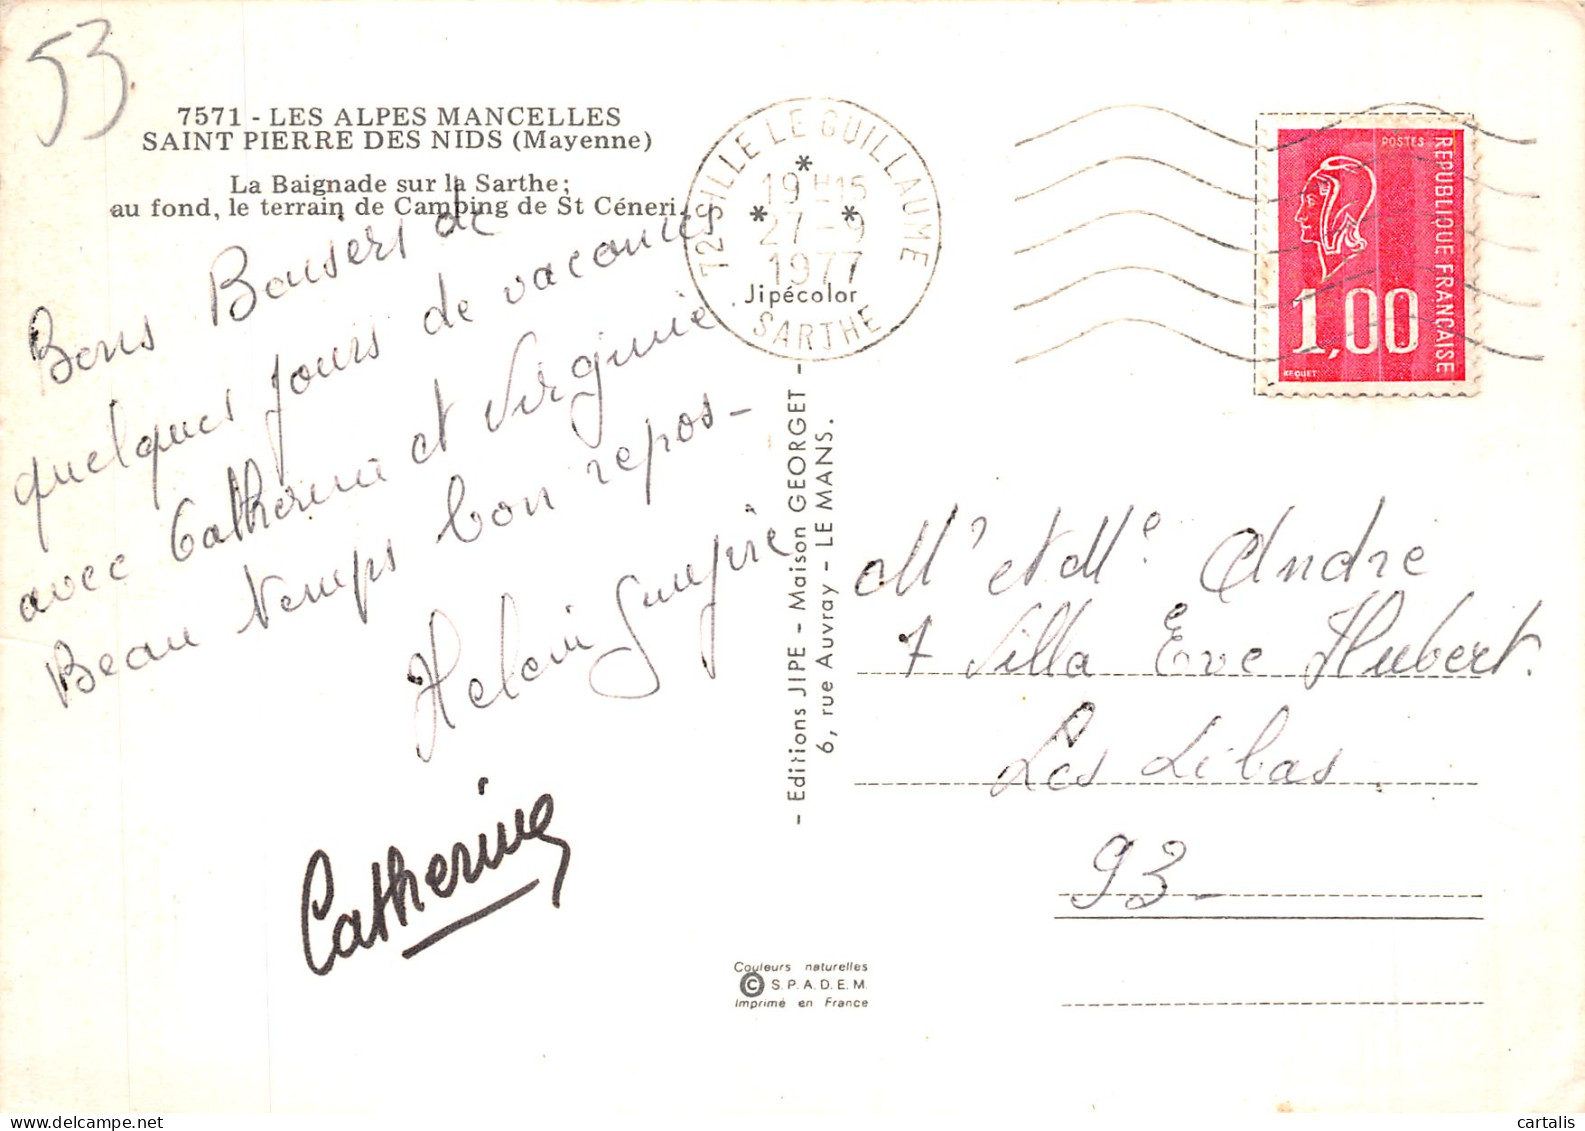 53
7571 - LES ALPES MANCELLES
SAINT PIERRE DES NIDS (Mayenne)
La Baignade sur la Sarthe;
au fond, le terrain de Camping de St Céneri.
Bons Baisers de
quelques jours de vacances
avec Catherine et Virginie
Beau temps bon repos-
Catherine
72 SILLE LE GUILLAUME
19H15
27-9
1977
SARTHE
Jipécolor
- Editions JIPE - Maison GEORGET -
6, rue Auvray - LE MANS.
POSTES
REPUBLIQUE FRANÇAISE
1,00
BEQUET
Mr et Me André
7 Villa Eve Hubert.
Les Lilas.
93-
Couleurs naturelles
© S.P.A.D.E.M.
Imprimé en France
cartalis